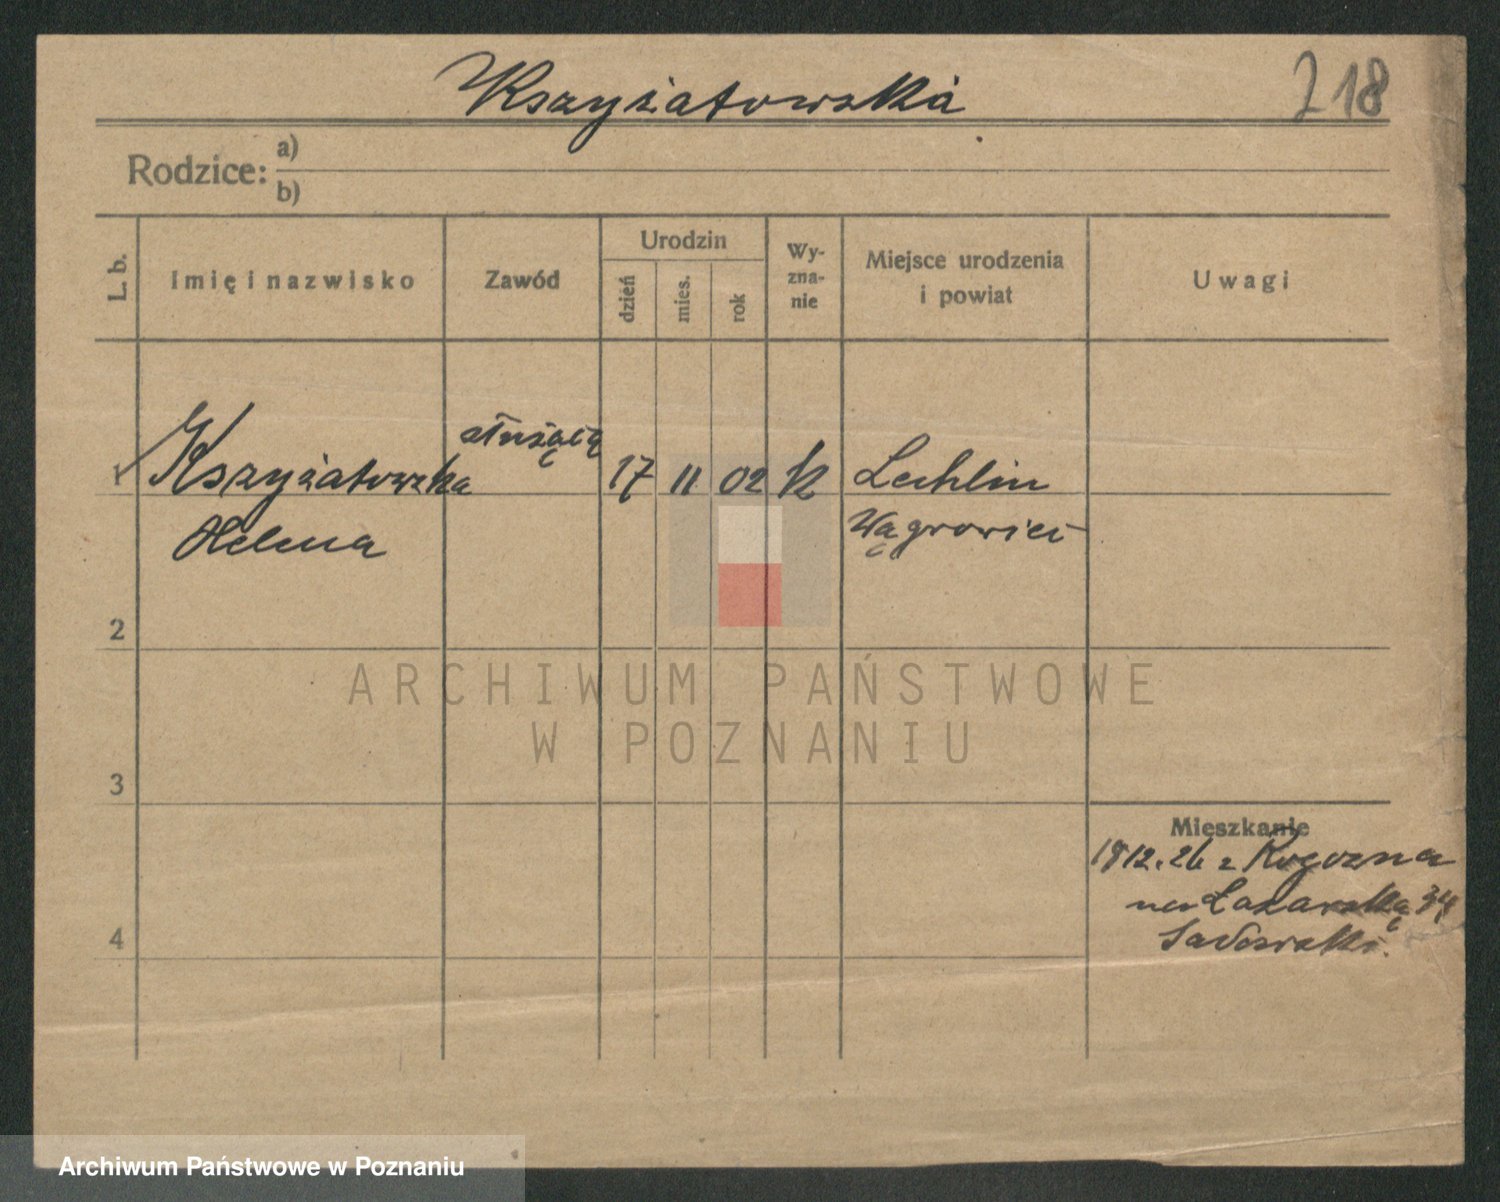 Kszyżatowska
218
Rodzice: a)
b)
L. b.
Imię i nazwisko
Zawód
Urodzin
dzień
mies.
rok
Wy-
zna-
nie
Miejsce urodzenia
i powiat
Uwagi
1 Kszyżatowska służącą 17 11 02 k Lechlin
Helena Wągrowiec
2
3
4
Mieszkanie
1912.26 z Rogozna
na Łazarską 34
Sadowski.
ARCHIWUM PAŃSTWOWE
W POZNANIU
Archiwum Państwowe w Poznaniu